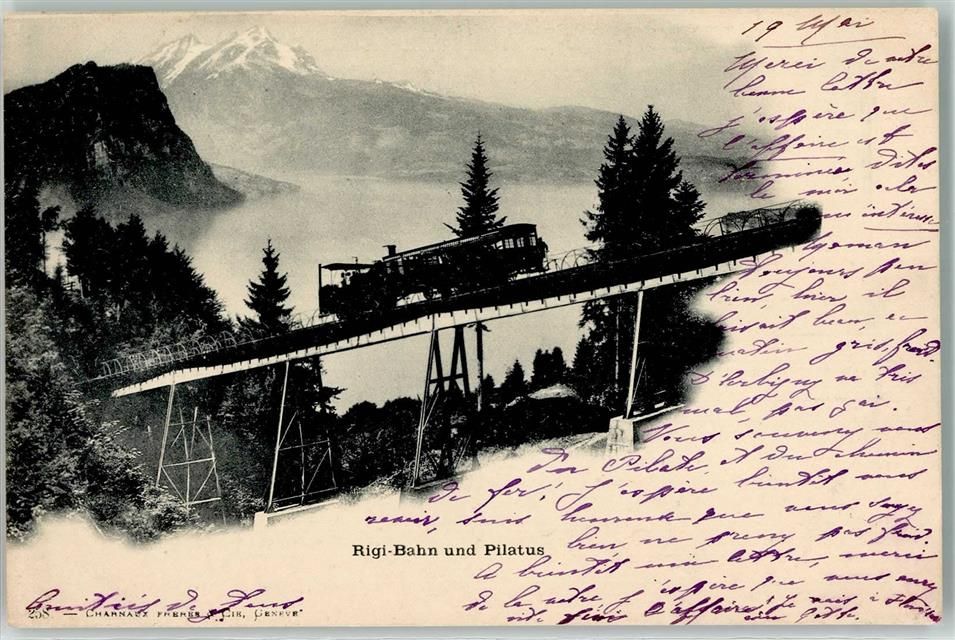 19 Mai
Merci de votre
bonne lettre
j'espère que
l'affaire est
terminée dites
le moi cela
intéresse
Toujours
bien, hier, il
faisait bon, ce
matin gris, froid
D'Herbigny va très
mal, pas gai.
Vous souvenez vous
Du Pilate, et du chemin
de fer, j'espère bientôt vous
revoir, suis heureuse que vous soyez
bien ne prenez pas froid.
A bientôt une lettre, merci
de la vôtre j'espère que vous aurez
vite fini l'affaire. Je vais à
Rigi-Bahn und Pilatus
Amitiés de tous
258. — CHARNAUX FRÈRES & CIE, GENÈVE